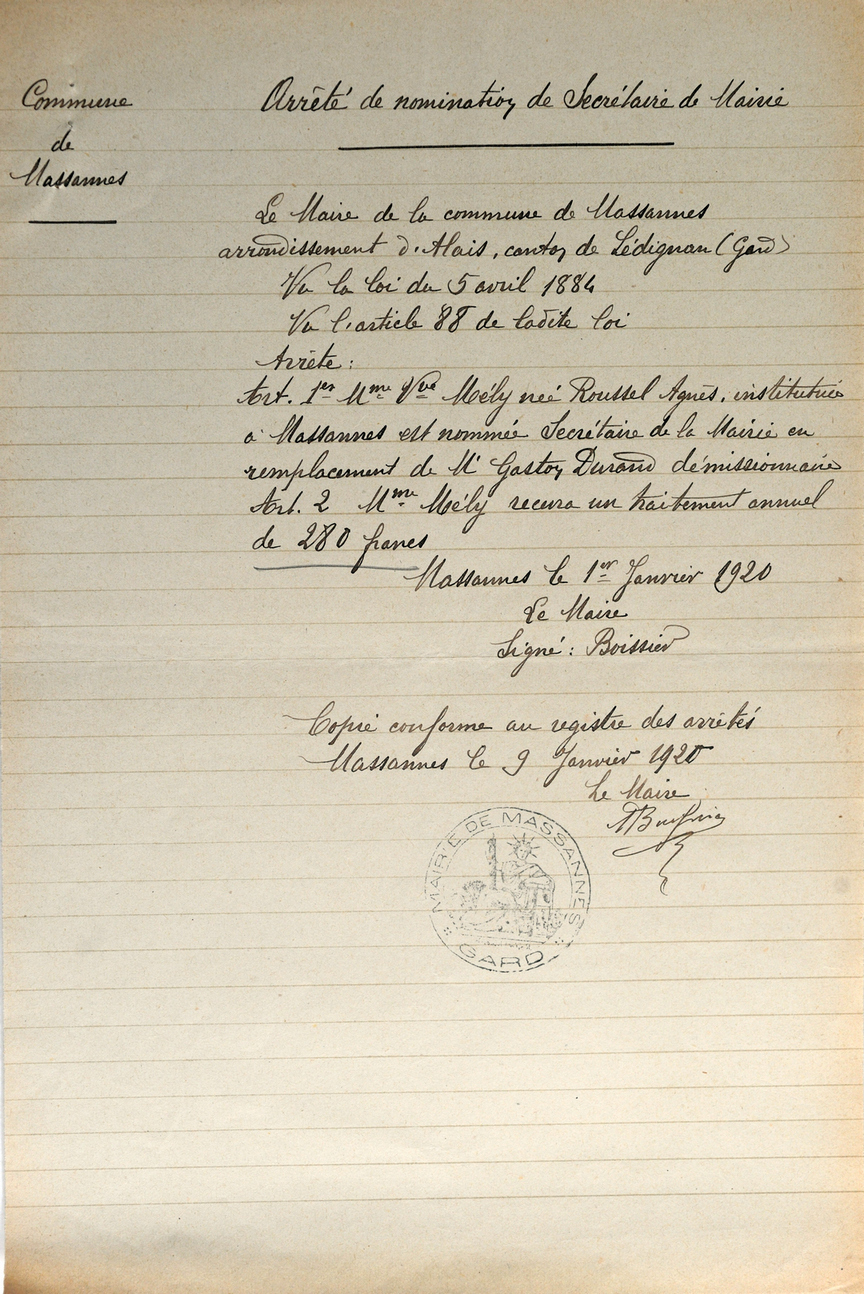 Commune
de
Massannes
Arrêté de nomination de Secrétaire de Mairie
Le Maire de la commune de Massannes
arrondissement d'Alais, canton de Lédignan (Gard)
Vu la loi du 5 avril 1884
Vu l'article 88 de ladite loi
Arrête :
Art. 1er Mme Vve Mély née Roussel Agnès, institutrice
à Massannes est nommée Secrétaire de la Mairie en
remplacement de Mr Gaston Durand démissionnaire
Art. 2 Mme Mély recevra un traitement annuel
de 280 francs
Massannes le 1er Janvier 1920
Le Maire
Signé : Boissier
Copie conforme au registre des arrêtés
Massannes le 9 Janvier 1920
Le Maire
MAIRIE DE MASSANNES
GARD